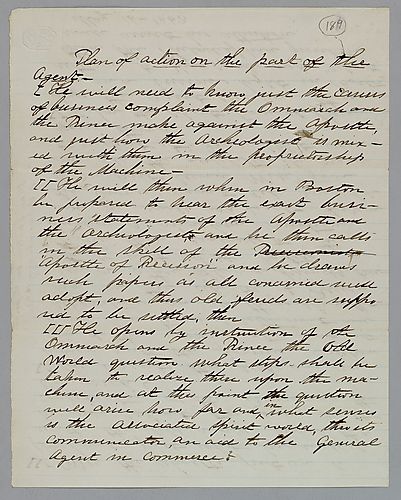 189
Plan of action on the part of the
Agent—
I He will need to know just the causes
of business complaint the Ommarch and
the Prince make against the Apostle,
and just how the Archeologist is mix-
ed with them in the proprietorship
of the Machine—
II He will then when in Boston
be prepared to hear the exact busi-
ness statements of the Apostle and
the "Archeologist" and he then calls
in the skill of the
"Apostle of Precision" and he draws
such papers as all concerned will
adopt, and thus old feuds are suppo-
sed to be settled, then
III He opens by instruction of the
Ommarch and the Prince the Old
World question what steps shall be
taken to realize there upon the ma-
chine, and at this point the question
will arise how far and in what sense
is the Associated Spirit World, thru its
communicator an aid to the General
Agent in commerce?